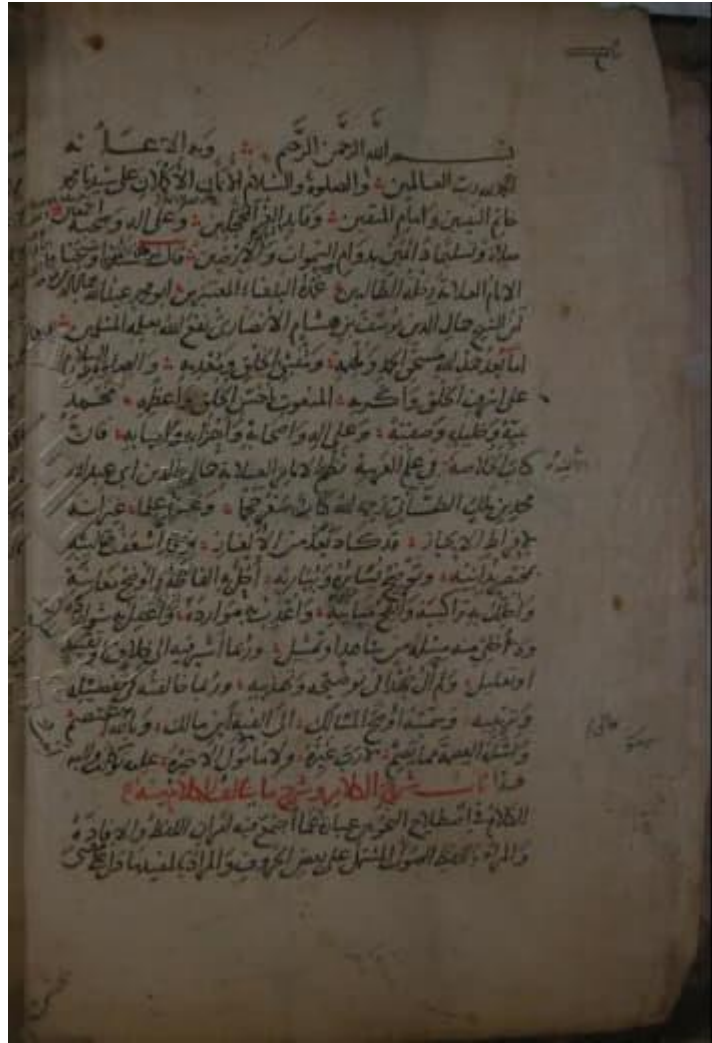 بسم الله الرحمن الرحيم وبه الاعانه
الحمد لله رب العالمين والصلوة والسلام الاتمان الاكملان على سيدنا محمد
خاتم النبيين وامام المتقين وقايد الغر المحجلين وعلى اله وصحبه اجمعين
صلاة وسلاما دائمين بدوام السموات والارضين قال وشيخنا
الامام العلامة رحلة الطالبين عمدة البلغاء المعتبرين ابو محمد عبدالله جمال الدين
ابن الشيخ جمال الدين يوسف بن هشام الانصارى نفع الله بعلمه المسلمين
اما بعد حمد الله مستحق الحمد وملهمه ومنشئ الخلق ومعدمه والصلاة والسلام
على اشرف الخلق واكرمه المنعوت باحسن الخلق واعظمه محمد
نبيه وخليله وصفيه وعلى اله واصحابه واحزابه واحبابه فان
كتاب الخلاصة في علم العربية نظم الامام العلامة جمال الدين ابى عبد الله
محمد بن مالك الطائى رحمه الله كتاب صغر حجما وغزر علما غير انه
لافراط الايجاز قد كاد يعد من الالغاز وقد اسعفت طالبيه
بمختصر يدانيه وتوضيح يسايره ويباريه احل به الفاظه واوضح معانيه
واحلل به تراكيبه وانقح مبانيه واعذب به موارده واعقل به شوارده
ولا اخلى منه مسئلة من شاهد او تمثيل وربما اشير فيه الى خلاف او نقد
او تعليل ولم ال جهدا في توضيحه وتهذيبه وربما خالفته في تفصيله
وترتيبه وسميته اوضح المسالك الى الفية ابن مالك وبالله اعتصم
واسئله العصمة مما يصم لا رب غيره ولا مامول الا خيره عليه توكلت واليه
هذا باب شرح الكلام وشرح ما يتالف الكلام منه
الكلام فى اصطلاح النحويين عبارة عما اجتمع فيه امران اللفظ والافادة
والمراد باللفظ الصوت المشتمل على بعض الحروف والمراد بالمفيد ما دل على معنى